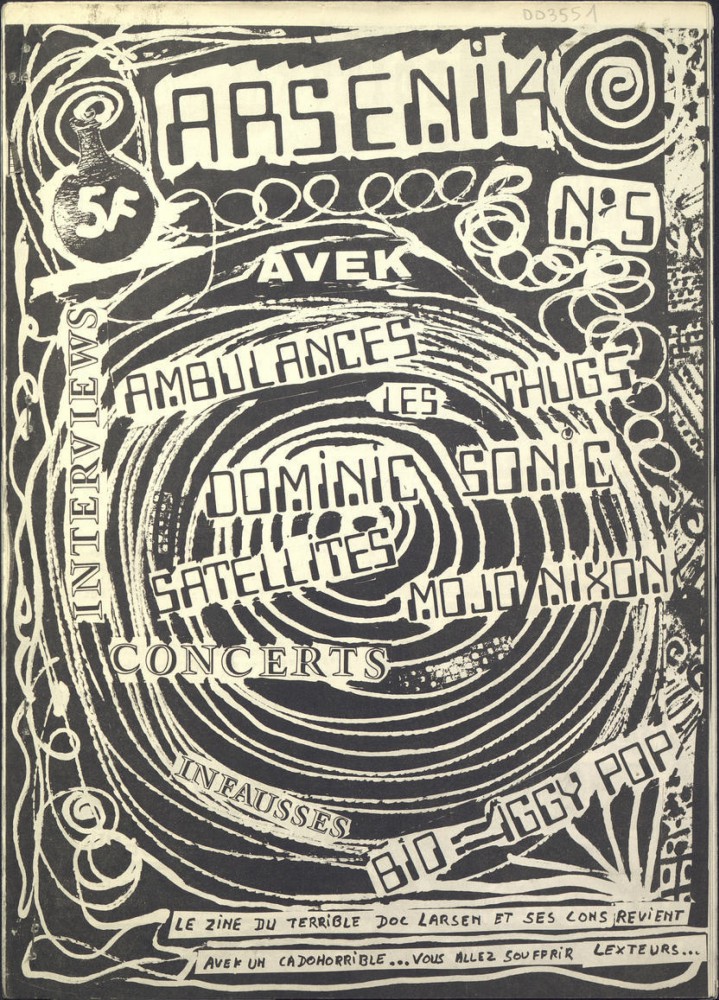 003551
ARSENiK
5F
N°5
AVEK
INTERVIEWS
AMBULANCES
LES THUGS
DOMiNiC SONiC
SATELLiTES
MOJO NiXON
CONCERTS
INFAUSSES
BiO - IGGY POP
LE ZINE DU TERRIBLE DOC LARSEN ET SES CONS REVIENT
AVEK UN CADOHORRIBLE... VOUS ALLEZ SOUFFRIR LEXTEURS...